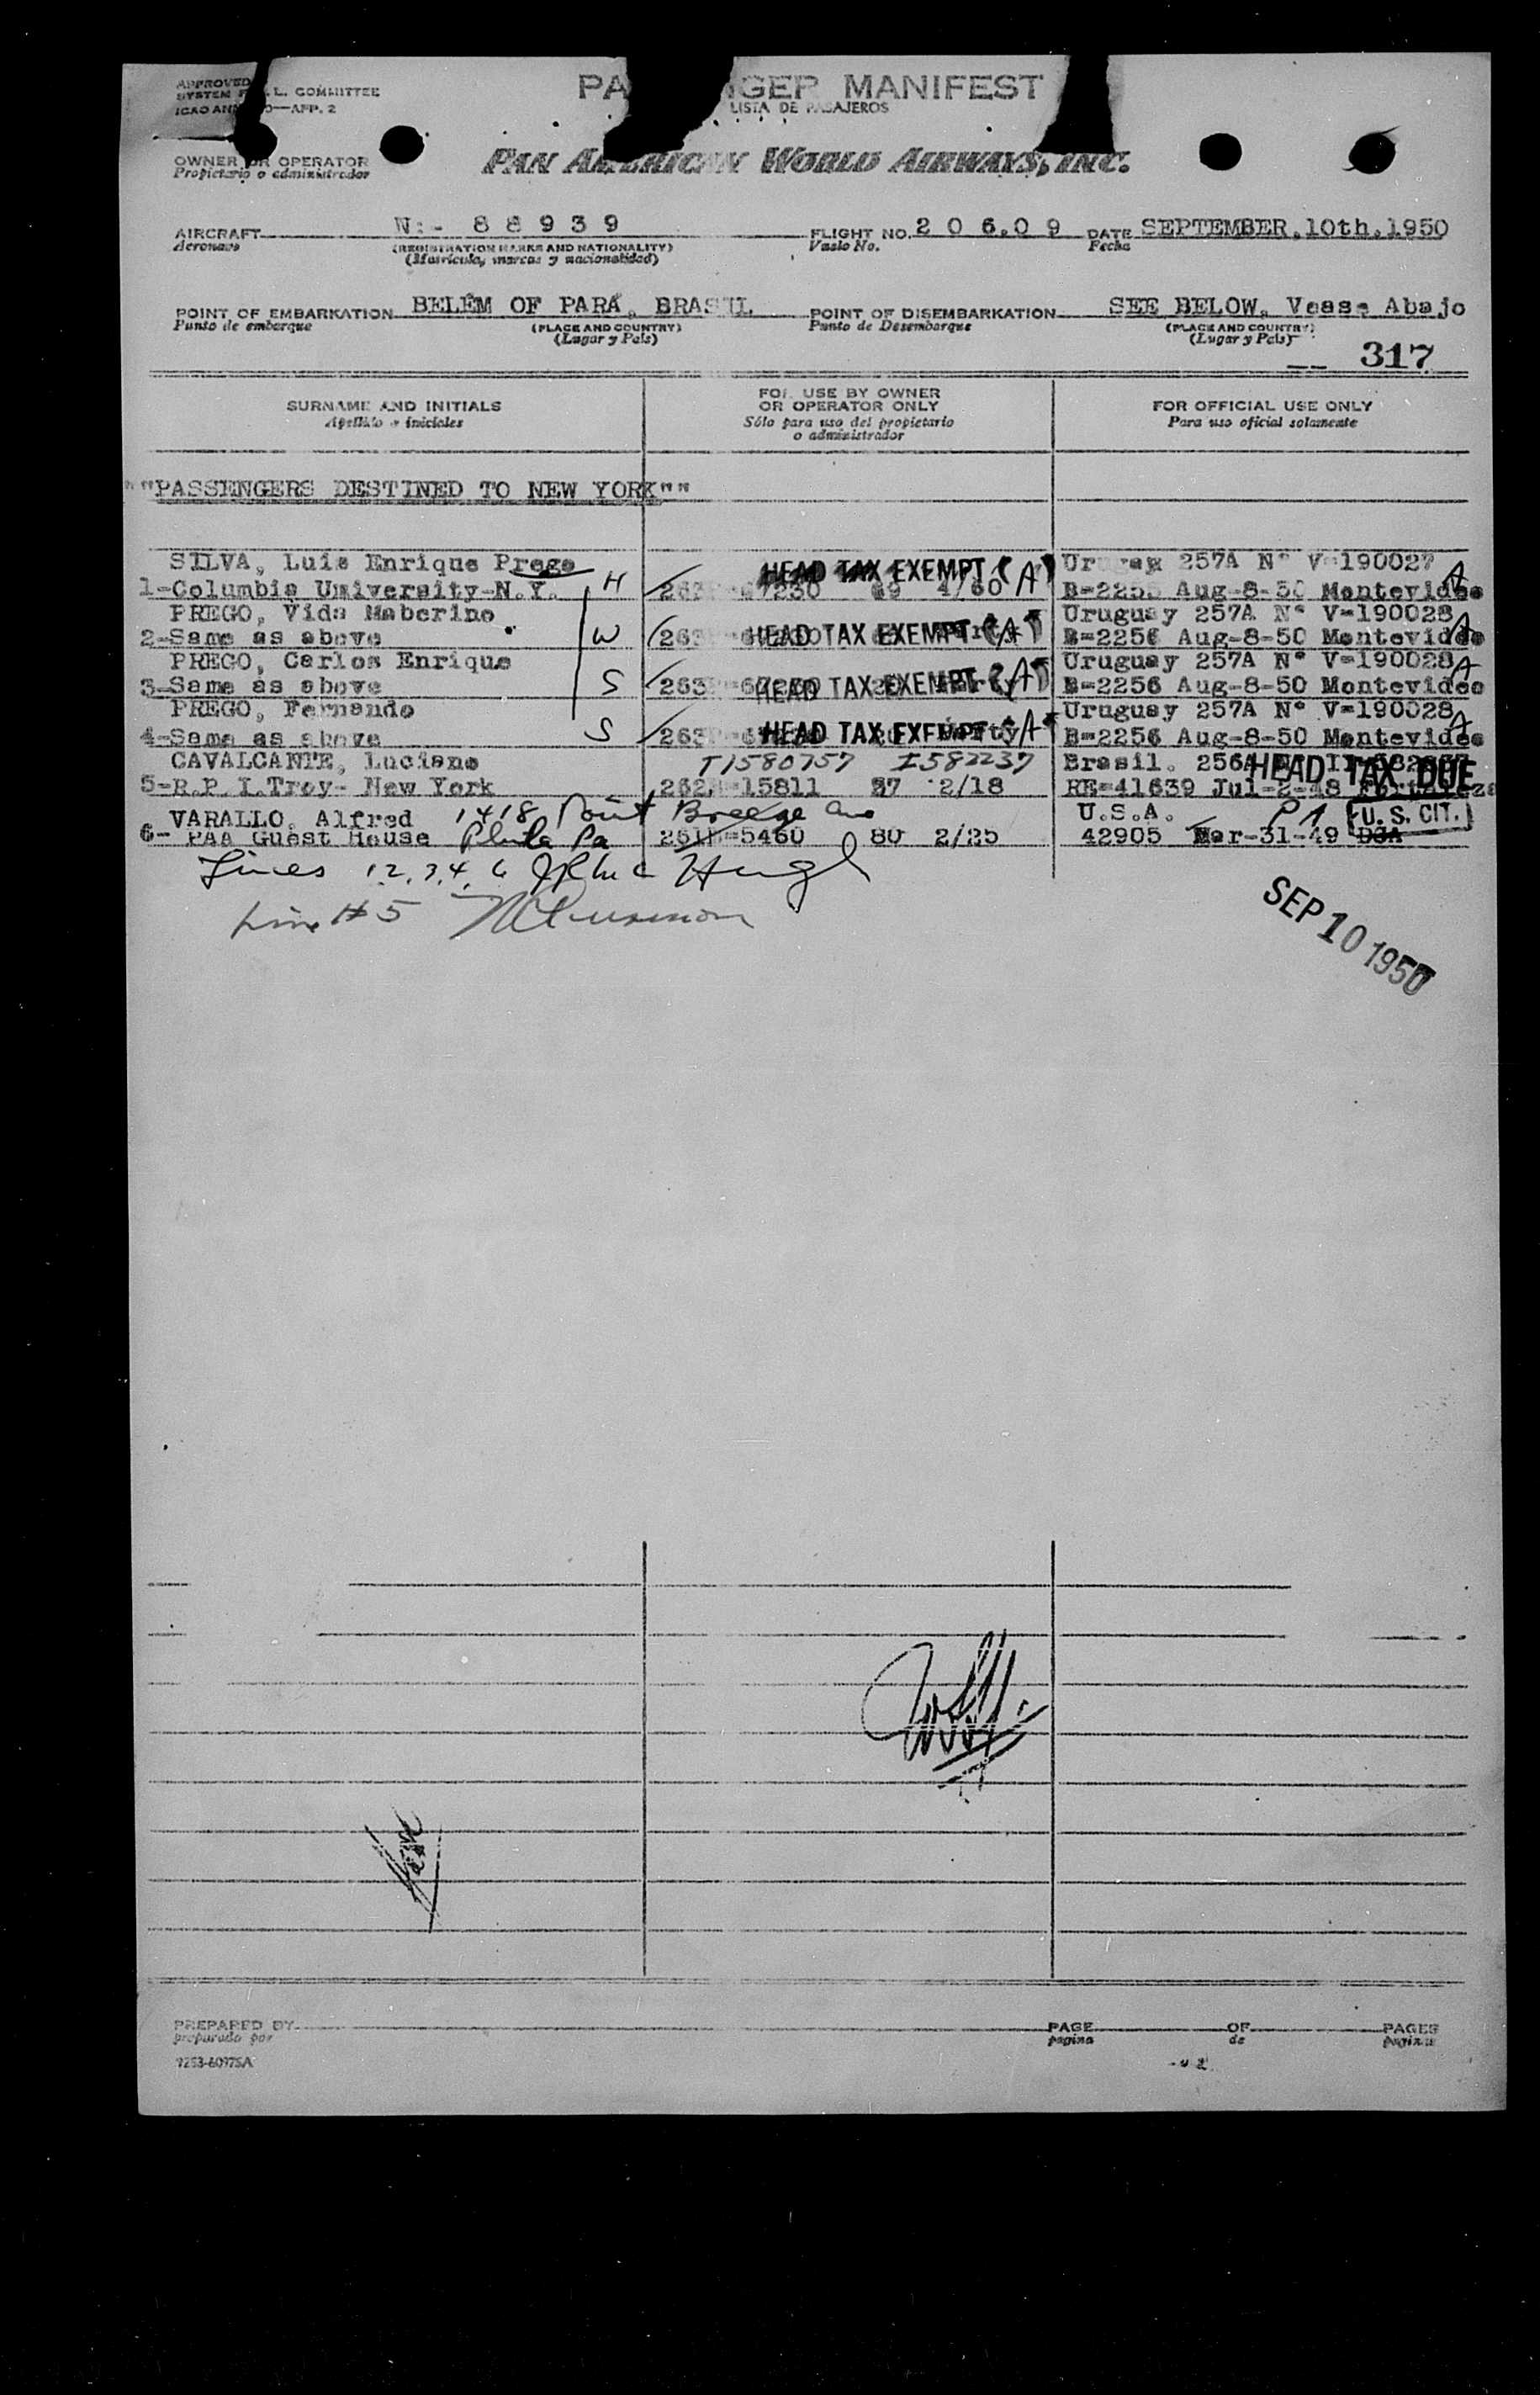 APPROVED L. COMMITTEE
SYSTEM
ICAO AN —APP. 2
PA NGER MANIFEST
LISTA DE PASAJEROS
OWNER OR OPERATOR
Propietario o administrador
PAN AMERICAN WORLD AIRWAYS, INC.
AIRCRAFT N:- 88939 FLIGHT NO. 206.09 DATE SEPTEMBER.10th.1950
Aeronave (REGISTRATION MARKS AND NATIONALITY) Vuelo No. Fecha
(Matricula, marcas y nacionalidad)
POINT OF EMBARKATION BELÉM OF PARÁ, BRASIL POINT OF DISEMBARKATION SEE BELOW, Vease Abajo
Punto de embarque (PLACE AND COUNTRY) Punto de Desembarque (PLACE AND COUNTRY)
(Lugar y País) (Lugar y País)
317
SURNAME AND INITIALS FOR USE BY OWNER OR OPERATOR ONLY FOR OFFICIAL USE ONLY
Apellido e iniciales Sólo para uso del propietario o administrador Para uso oficial solamente
""PASSENGERS DESTINED TO NEW YORK""
SILVA, Luis Enrique Prego HEAD TAX EXEMPT (A) 257A N° V-190027
1-Columbia University-N.Y. H 4/60 Aug-8-50 Montevideo A
PREGO, Vida Maberino Uruguay 257A N° V-190028
2-Same as above W 263 HEAD TAX EXEMPT (A) B-2256 Aug-8-50 Montevideo A
PREGO, Carlos Enrique Uruguay 257A N° V-190028
3-Same as above S 263 HEAD TAX EXEMPT (A) B-2256 Aug-8-50 Montevideo A
PREGO, Fernando Uruguay 257A N° V-190028
4-Same as above S 263 HEAD TAX EXEMPT (A) B-2256 Aug-8-50 Montevideo A
CAVALCANTE, Luciano T1580757 I582237 Brasil. 256A HEAD TAX DUE
5-R.P.I.Troy- New York 15811 2/18 RE-41639 Jul-2-48
VARALLO, Alfred 1418 Point Breeze Ave U.S.A. U. S. CIT.
6- PAA Guest House Phila Pa 5460 80 2/25 42905 Mar-31-49
Lines 1 2, 3, 4, 6
Line #5
SEP 10 1950
PREPARED BY PAGE OF PAGES
preparado por pagina de paginas
9253-60975A